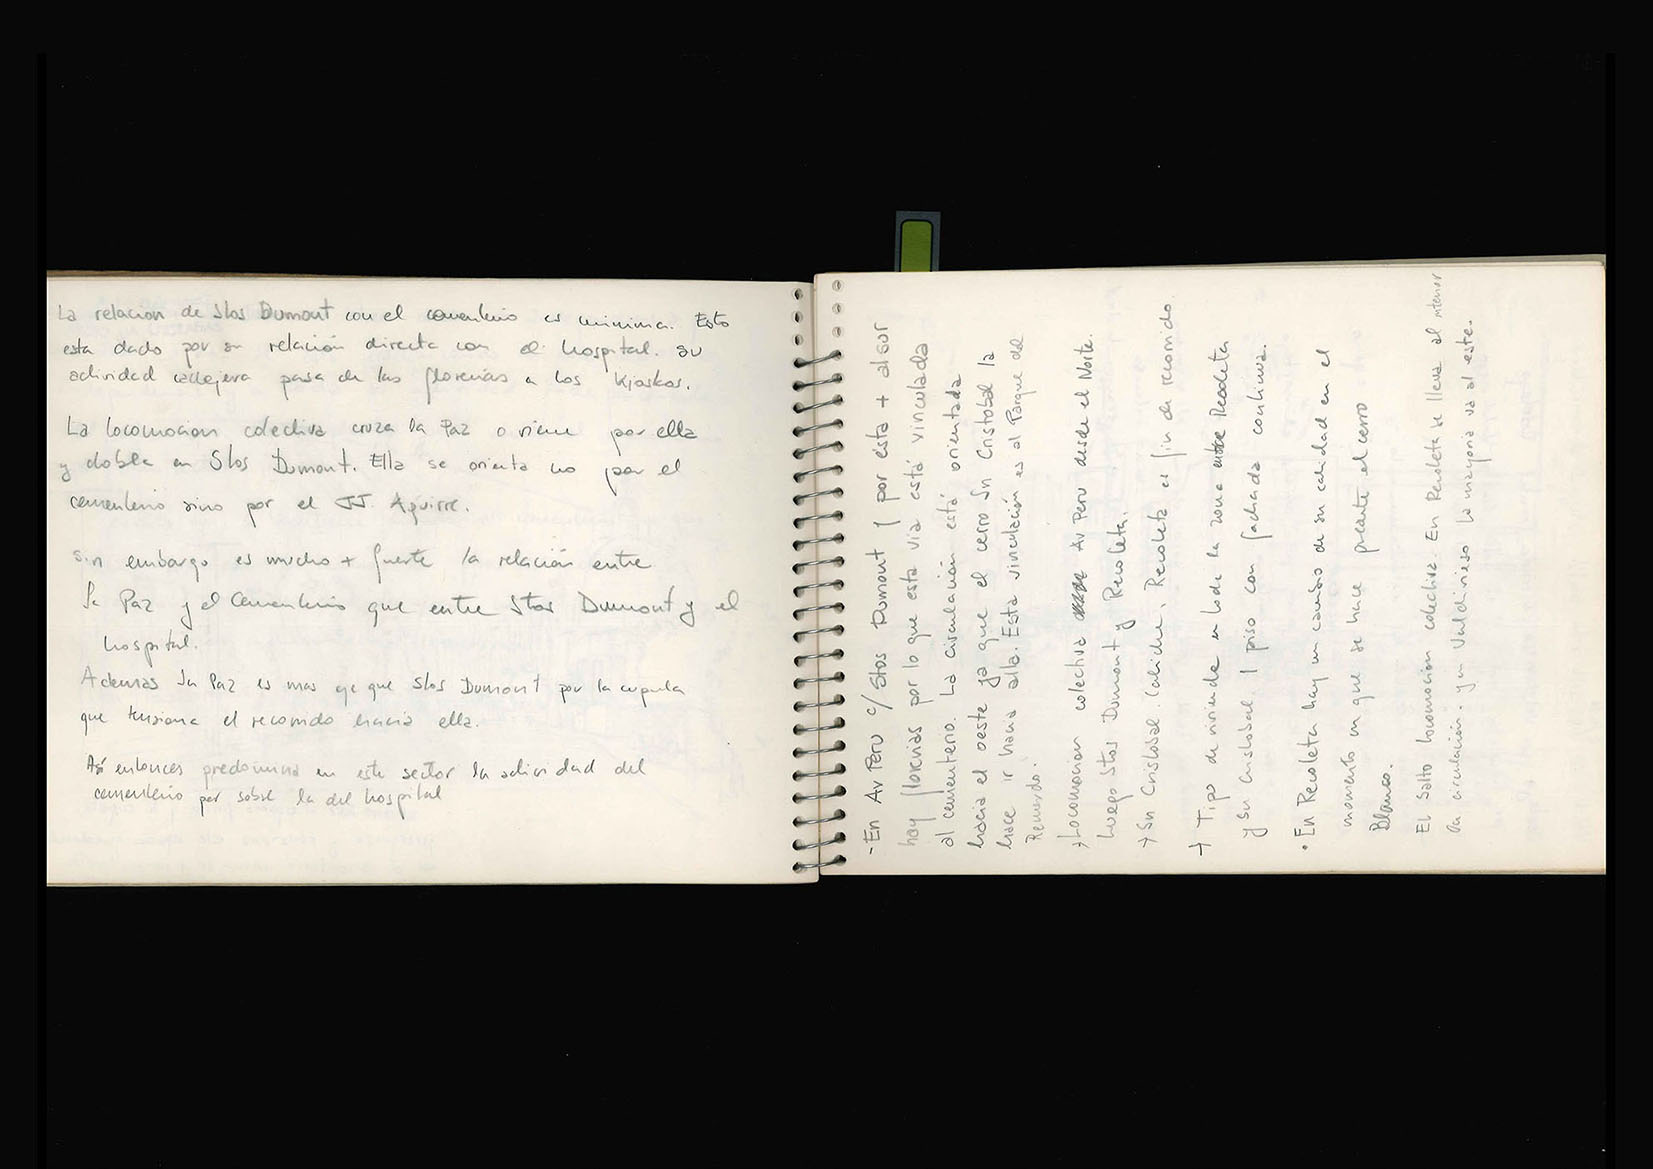 La relacion de Stos Dumont con el cementerio es minima. Esto
esta dado por su relación directa con el hospital. su
actividad callejera pasa de las florerias a los kioskos.
La locomocion colectiva cruza la Paz o viene por ella
y dobla en Stos Dumont. Ella se orienta no por el
cementerio sino por el JJ. Aguirre.
sin embargo es mucho + fuerte la relación entre
la Paz y el Cementerio que entre Stos Dumont y el
hospital.
Ademas la Paz es mas eje que Stos Dumont por la cupula
que tensiona el recorrido hacia ella.
Así entonces predomina en este sector la actividad del
cementerio por sobre la del hospital
- En Av Peru c/ Stos Dumont y por ésta + al sur
hay florerias por lo que esta via está vinculada
al cementerio. La circulación está orientada
hacia el oeste ya que el cerro Sn Cristobal la
hace ir hacia alla. Esta vinculación es al Parque del
Recuerdo.
→ Locomocion colectiva Av Peru desde el Norte.
Luego Stos Dumont y Recoleta.
→ Sn Cristobal. Recoleta es fin de recorrido
→ Tipo de vivienda en lode la zona entre Recoleta
y Sn Cristobal. 1 piso con fachada continua.
• En Recoleta hay un cambio de su calidad en el
momento en que se hace presente el cerro
Blanco.
El Salto locomoción colectiva. En Recoleta se lleva al interior
la circulación. y en Valdivieso la mayoria va al este.